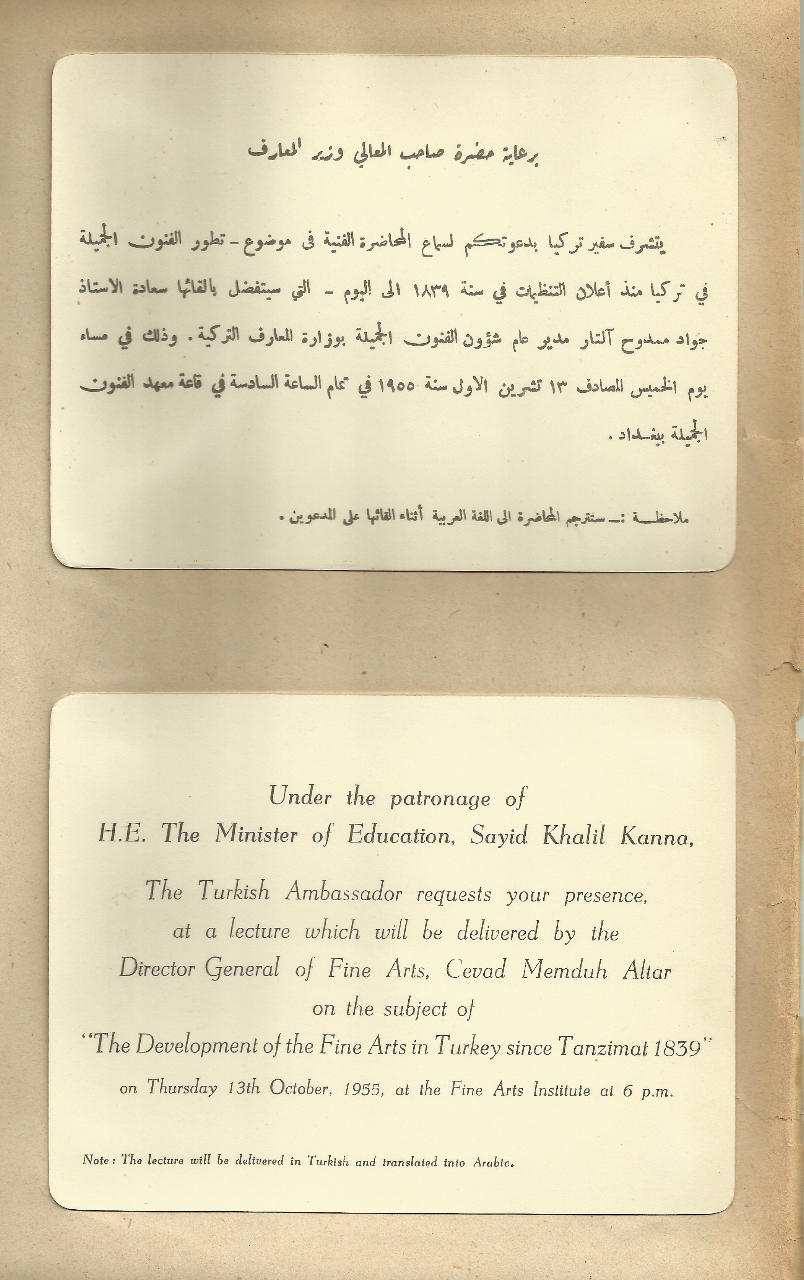 برعاية حضرة صاحب المعالي وزير المعارف
يتشرف سفير تركيا بدعوتكم لسماع المحاضرة الفنية في موضوع - تطور الفنون الجميلة
في تركيا منذ أعلان التنظيمات في سنة ١٨٣٩ الى اليوم - التي سيتفضل بالقائها سعادة الاستاذ
جواد ممدوح آلتار مدير عام شؤون الفنون الجميلة بوزارة المعارف التركية . وذلك في مساء
يوم الخميس المصادف ١٣ تشرين الاول سنة ١٩٥٥ في تمام الساعة السادسة في قاعة معهد الفنون
الجميلة ببغــداد .
ملاحظــة :ــ ستترجم المحاضرة الى اللغة العربية أثناء القائها على المدعوين .
Under the patronage of
H.E. The Minister of Education, Sayid Khalil Kanna,
The Turkish Ambassador requests your presence,
at a lecture which will be delivered by the
Director General of Fine Arts, Cevad Memduh Altar
on the subject of
"The Development of the Fine Arts in Turkey since Tanzimat 1839"
on Thursday 13th October, 1955, at the Fine Arts Institute at 6 p.m.
Note : The lecture will be delivered in Turkish and translated into Arabic.